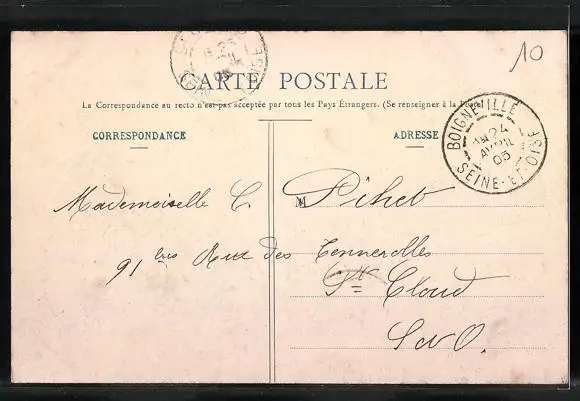 10
23
CARTE POSTALE
La Correspondance au recto n'est pas acceptée par tous les Pays Étrangers. (Se renseigner à la Poste)
BOIGNEVILLE
24
AVRIL
05
SEINE-ET-OISE
CORRESPONDANCE
ADRESSE
Mademoiselle C. Pihet
91 bis Rue des Tennerolles
St Cloud
S et O.